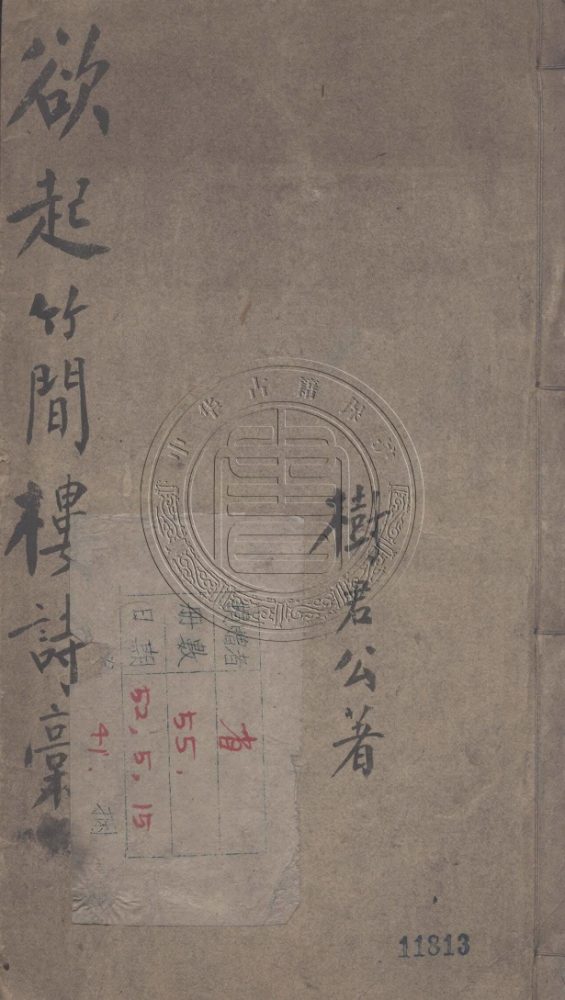 欲起竹間樓詩稾
樹君公著
中华古籍保
册數 55.
日期 52.5.15
11813